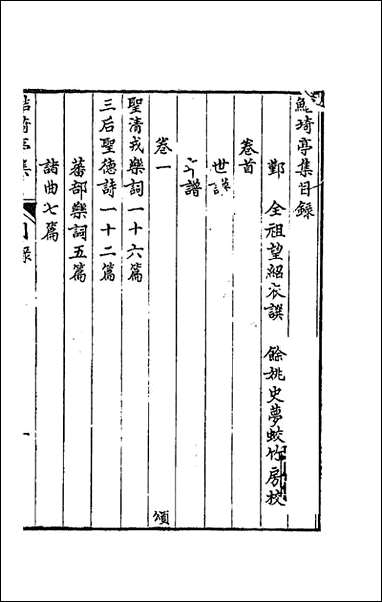 鮚埼亭集目錄
鄞　全祖望紹衣譔　餘姚史夢蛟竹房校
卷首
世譜
年譜
卷一　頌
聖清戎樂詞一十六篇
三后聖德詩一十二篇
蕃部樂詞五篇
諸曲七篇
鮚埼亭集　目錄　一